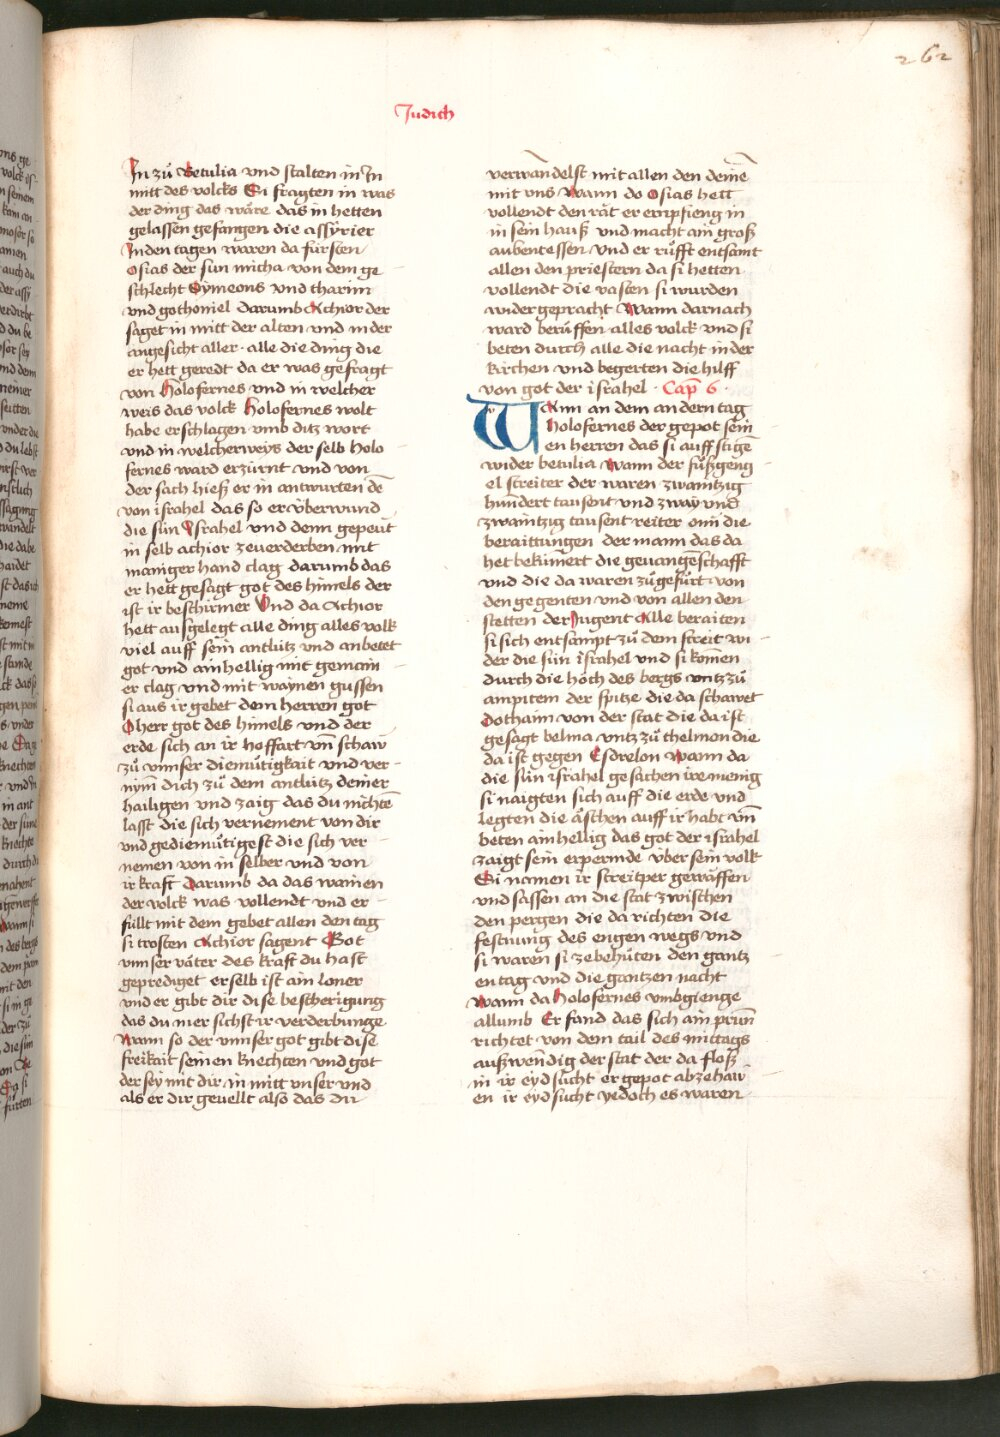 262
Judith
In zů Betulia vnd stalten in In
mitt des volcks Si fragten in was
der ding das wäre das in hetten
gelassen gefangen die assÿrier
In den tagen waren da fürsten
Osias der sun micha von dem ge
schlecht Symeons vnd tharim
vnd gothoniel darumb Achior der
saget in mitt der alten vnd in der
angesicht aller · alle die ding die
er hett geredt da er was gefragt
von Holofernes vnd in welcher
weis das volck Holofernes wolt
habe erschlagen vmb ditz wort
vnd in welcherweys der selb Holo
fernes ward erzürnt vnd von
der sach hieß er in antwurten dē
von israhel das so er vberwund
die sün Israhel vnd denn gepeut
in selb achior zeuerderben mit
maniger hand clag darumb das
er hett gesagt got des himels der
ist ir beschirmer Vnd da Achior
hett ausgelegt alle ding alles volk
viel auff sein antlütz vnd anbetet
got vnd ainhellig mit gemain
er clag vnd mit waÿnen gussen
si aus ir gebet dem herren got
O herr got des himels vnd der
erde sich an ir hoffart vn̄ schaw
zů vnnser diemütigkait vnd ver
nym̄ dich zů dem antlütz deiner
hailigen vnd zaig das du nichtē
lasst die sich vernement von dir
vnd gediemůtigest die sich ver
nemen von in selber vnd von
ir kraft Darumb da das wainen
der volck was vollendt vnd er
füllt mit dem gebet allen den tag
si trosten Achior sagent Got
vnnser väter des kraft du hast
geprediget er selb ist ain loner
vnd er gibt dir dise bescherigung
das du mer sichst ir verderbunge
Wann so der vnnser got gibt dise
freikait seinen knechten vnd got
der seÿ mit dir in mitt vnser vnd
als er dir geuellt also das du
verwandelst mit allen den deinē
mit vns Wann do Osias hett
vollendt den rät er empfieng in
in sein hauß vnd macht ain groß
aubentessen vnd er rüfft entsamt
allen den priestern da si hetten
vollendt die vasten si wurden
widergepracht Wann darnach
ward berüffen alles volck vnd si
beten durch alle die nacht in der
kirchen vnd begerten die hilff
von got der israhel · Cap̄ 6 ·
WAnn an dem andern tag
Holofernes der gepot sein
en herren das si auff stigē
wider betulia Wann der füßgeng
el streiter der waren zwaintzig
hundert tausent vnd zway vnd
zwaintzig tausent reiter onn die
beraittungen der mann das da
het bekümert die geuangēschafft
vnd die da waren zůgefürt von
den gegenten vnd von allen den
stetten der Jugent Alle beraiten
si sich entsampt zů dem streit wi
der die sün israhel vnd si komen
durch die höch des bergs vntz zů
ampitem der spitze die da schawet
Dothaim von der stat die da ist
gesagt belma vntz zů thelmon die
da ist gegen Esdrelon Wann da
die sün israhel gesachen ire menig
si naigten sich auff die erde vnd
legten die äschen auff ir habt vn̄
beten ainhellig das got der israhel
zaigt sein erpermde vber sein volk
Si namen ir streitper gewäffen
vnd sassen an die stat zwischen
den pergen die da richten die
festnung des engen wegs vnd
si waren si zebehüten den gantz
en tag vnd die gantzen nacht
Wann da Holofernes vmbgienge
allumb Er fand das sich ain prun̄
richtet von dem tail des mittags
außwendig der stat der da floß
in ir eyd sücht er gepot abzehaw
en ir eyd sücht yedoch es waren